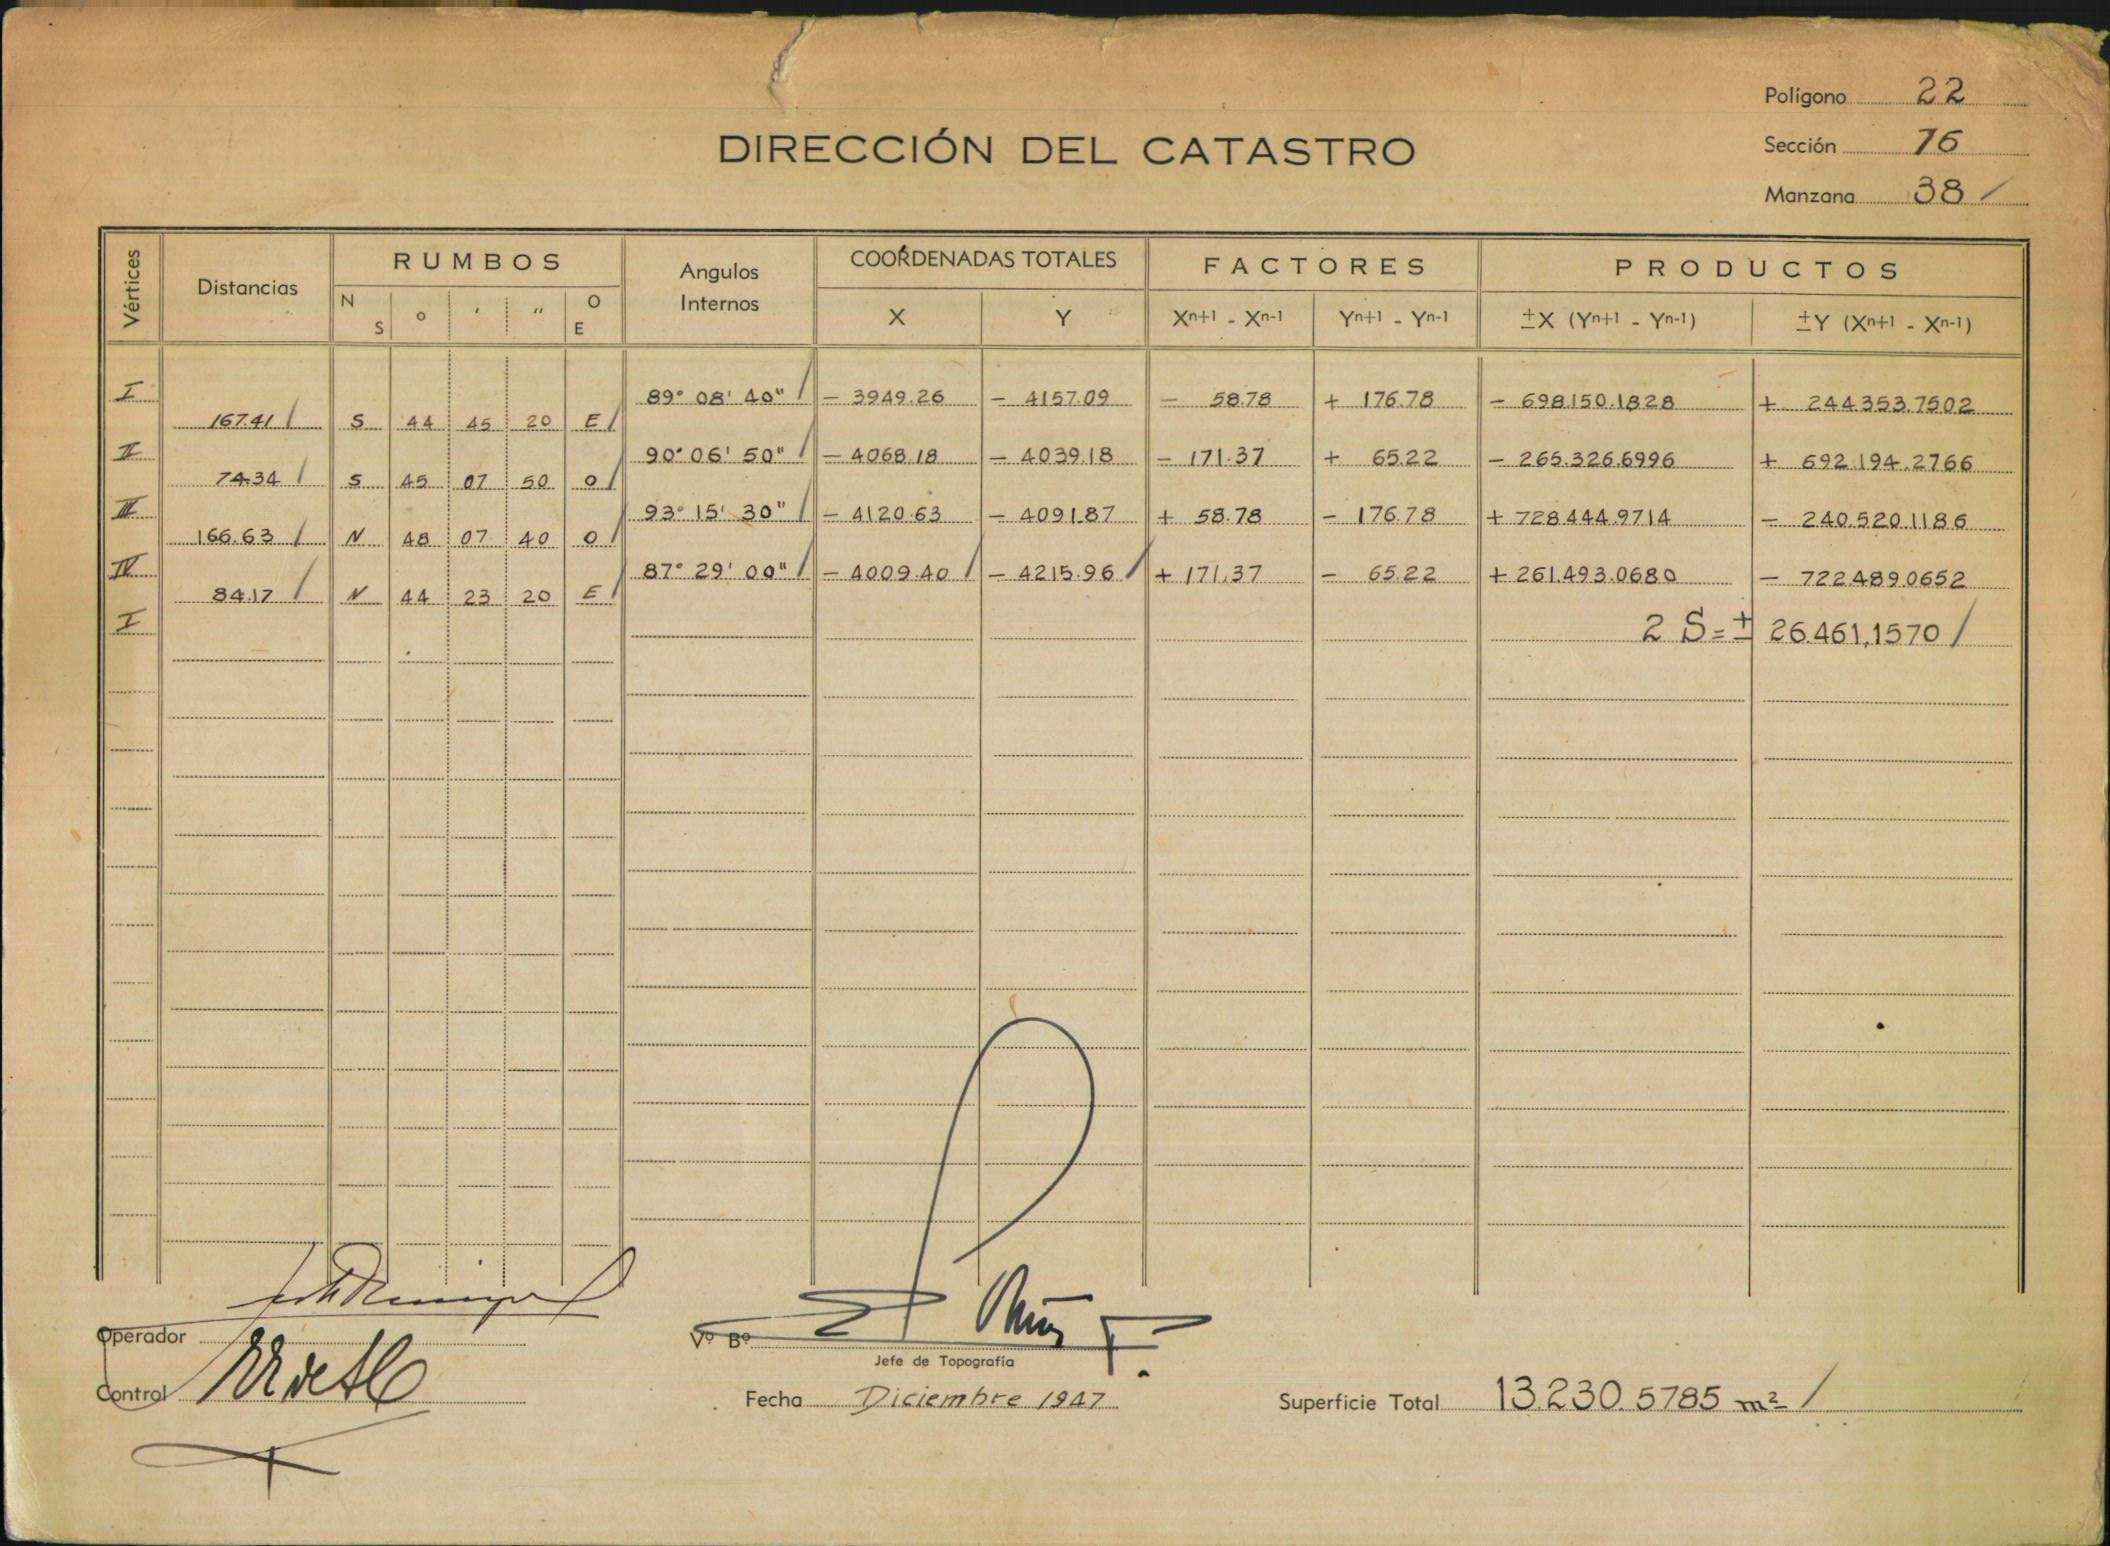 Polígono 22
DIRECCIÓN DEL CATASTRO
Sección 76
Manzana 38 /
Vértices Distancias RUMBOS Angulos Internos COORDENADAS TOTALES FACTORES PRODUCTOS
N S ° ' " O E X Y Xn+1 - Xn-1 Yn+1 - Yn-1 ±X (Yn+1 - Yn-1) ±Y (Xn+1 - Xn-1)
I 89° 08' 40" / - 3949.26 - 4157.09 - 58.78 + 176.78 - 698150.1828 + 244353.7502
167.41 / S 44 45 20 E /
II 90° 06' 50" / - 4068.18 - 4039.18 - 171.37 + 65.22 - 265.326.6996 + 692.194.2766
74.34 / S 45 07 50 O /
III 93° 15' 30" / - 4120.63 - 4091.87 + 58.78 - 176.78 + 728.444.9714 - 240.520.1186
166.63 / N 48 07 40 O /
IV 87° 29' 00" / - 4009.40 / - 4215.96 / + 171.37 - 65.22 + 261.493.0680 - 722.489.0652
84.17 / N 44 23 20 E /
I 2 S = ± 26.461,1570 /
Operador
Vº Bº
Jefe de Topografía
Control
Fecha Diciembre 1947
Superficie Total 13.230.5785 m² /